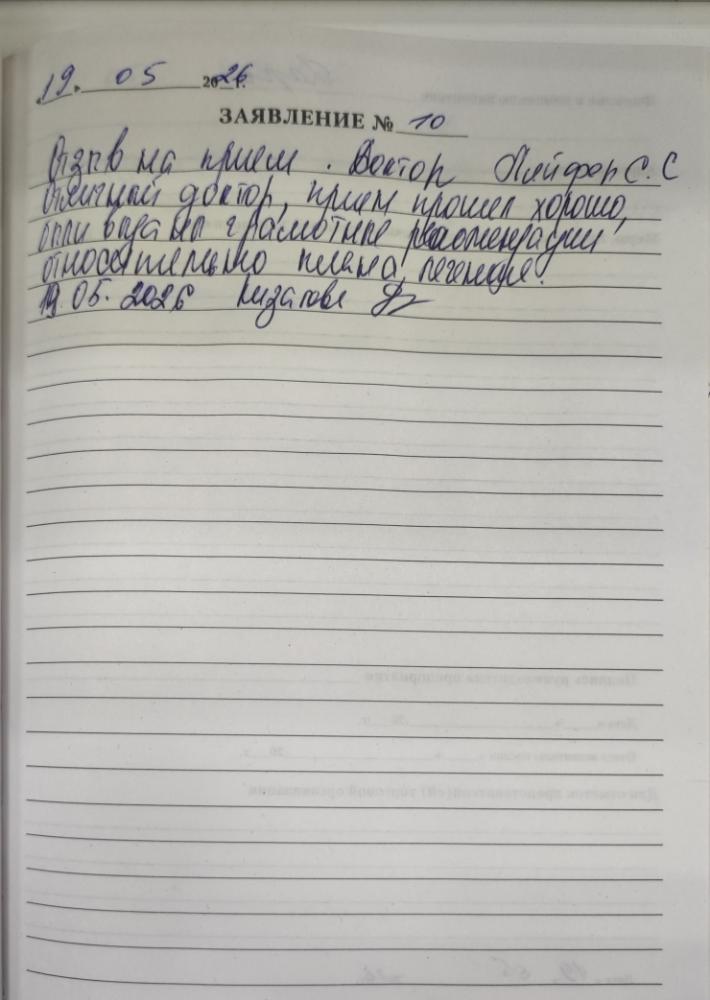 19. 05 2026 г.
ЗАЯВЛЕНИЕ № 10
Отзыв на прием. Доктор Пейфер С.С
Отличный доктор, прием прошел хорошо,
были выданы грамотные рекомендации
относительно плана лечения.
19.05.2026